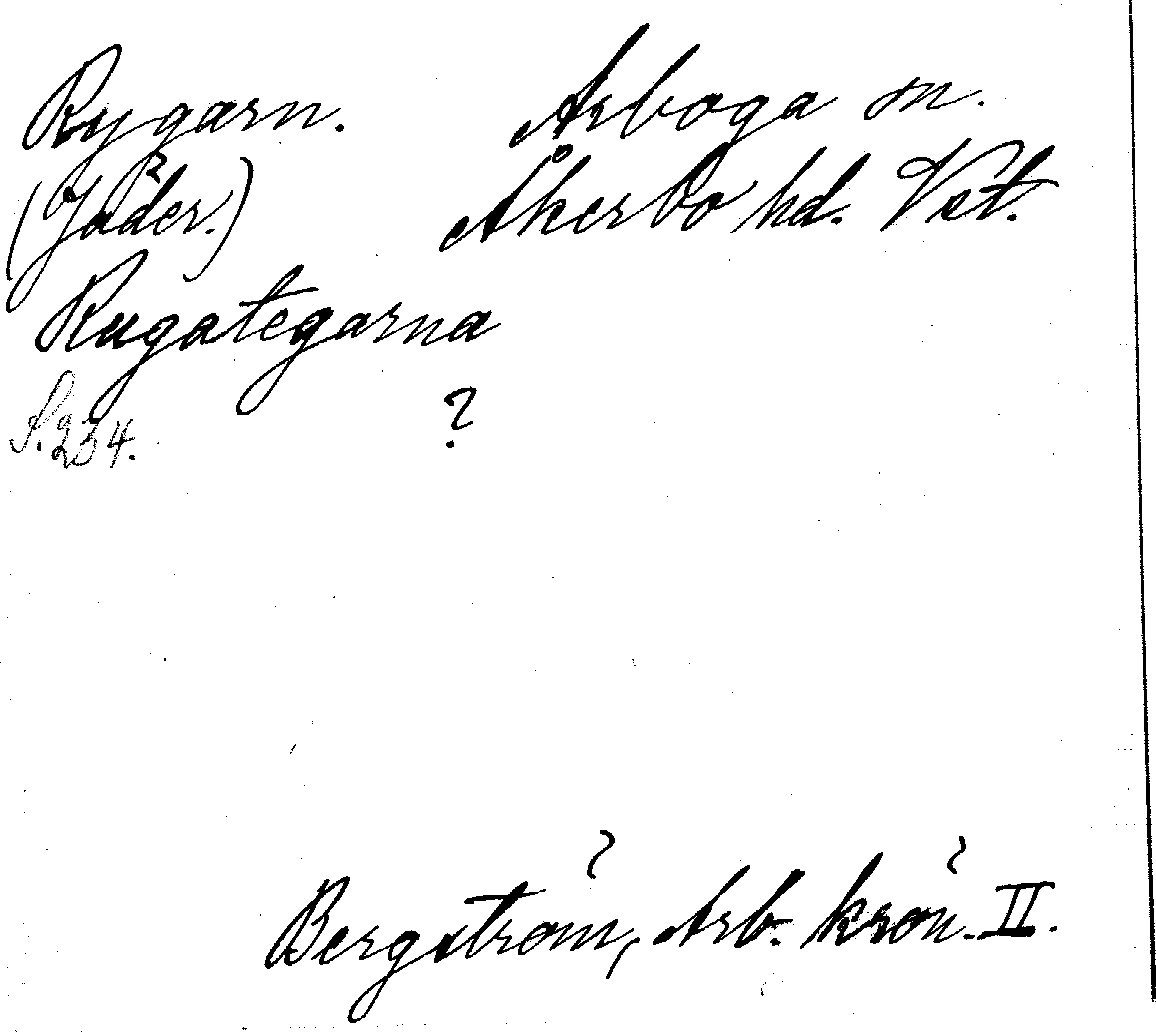 Rygarn. Arboga sn.
(Jäder.) Åkerbo hd. Vst.
Rugategarna
S. 234. ?
Bergström, Arb. krön. II.